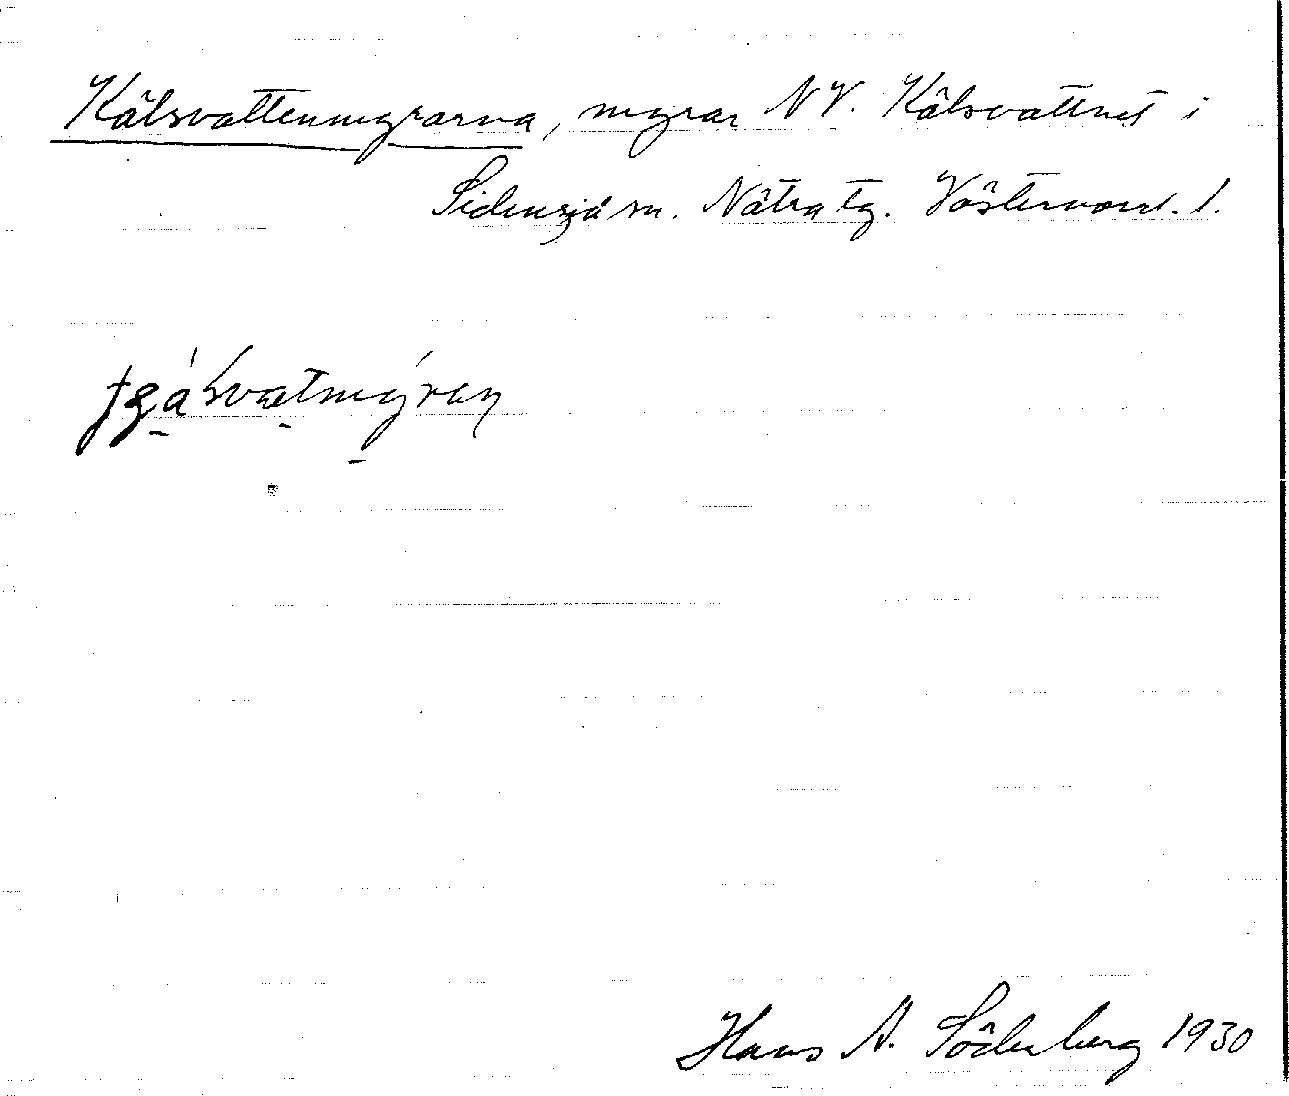 Kälsvattenmyrarna, myrar NV. Kälsvattnet i
Sidensjö sn. Nätra tg. Västernorrl. l.
Hans A. Söderberg 1930